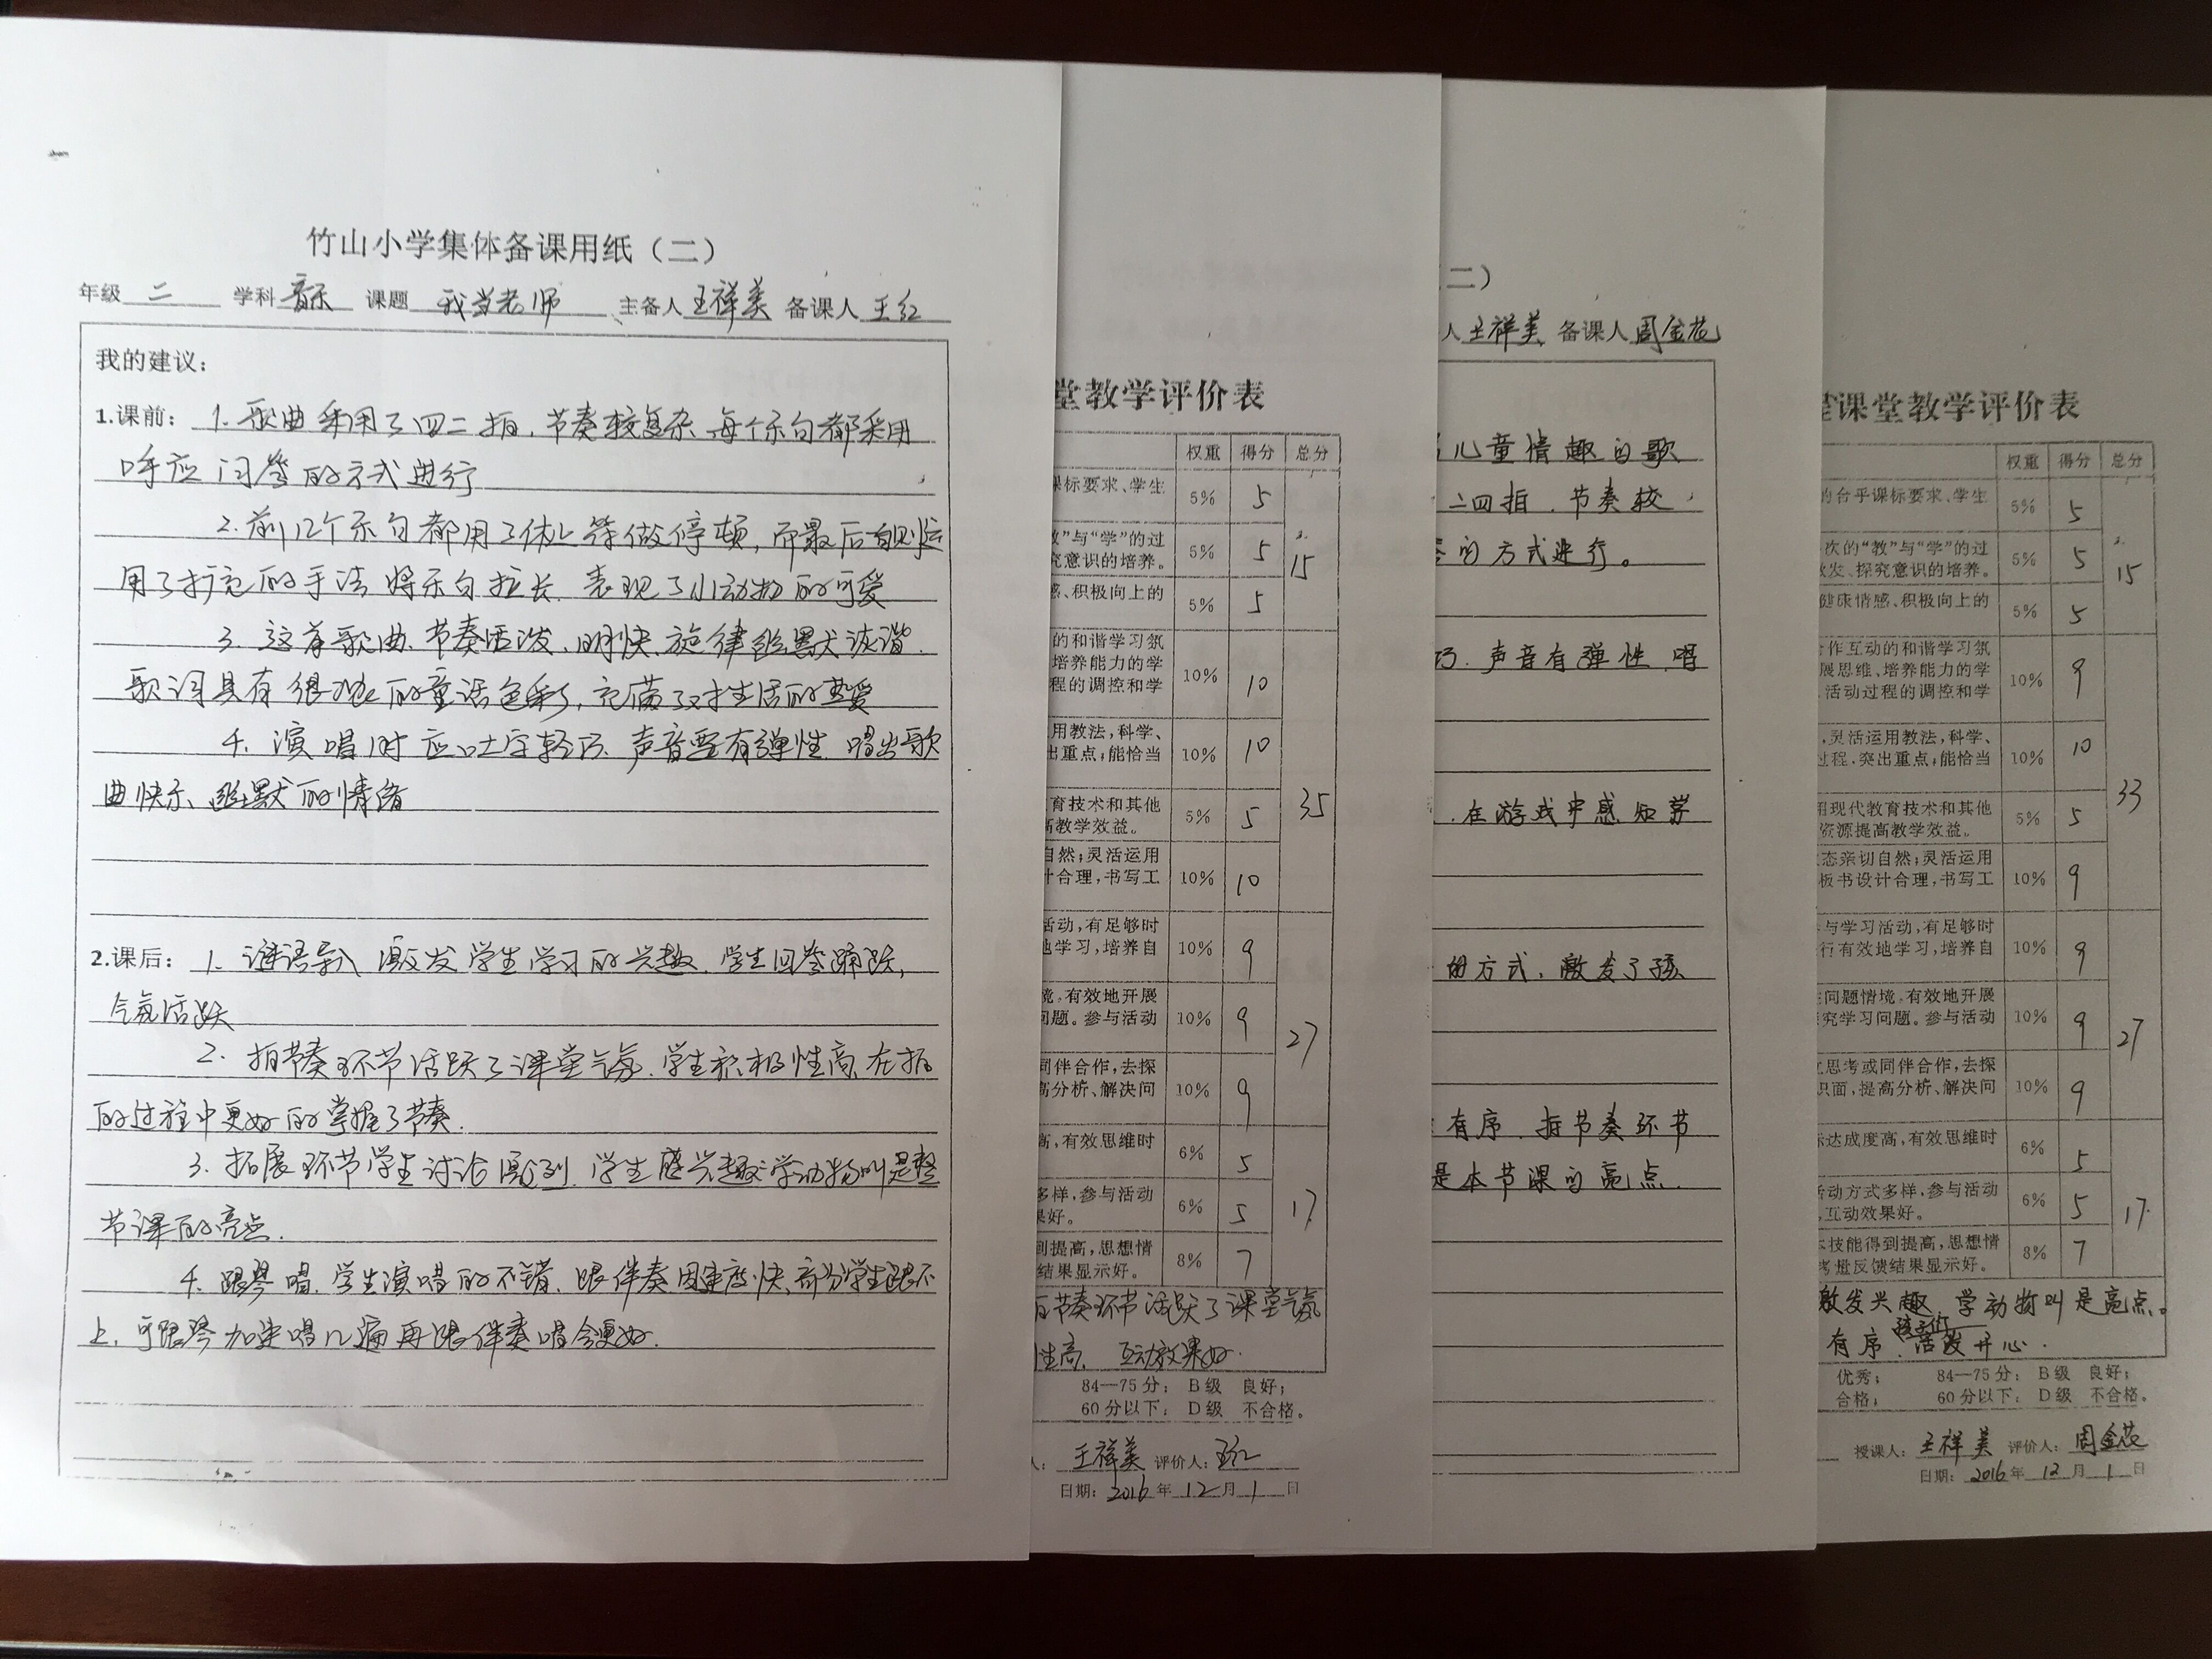 竹山小学集体备课用纸（二）
年级 二 学科 音乐 课题 我当老师 主备人 王祥美 备课人 王红
我的建议：
1.课前： 1. 歌曲采用了四二拍，节奏较复杂，每个乐句都采用
呼应问答的方式进行
2. 前几个乐句都用了休止符做停顿，而最后
用了扩充的手法将乐句拉长，表现了小动物的可爱
3. 这首歌曲，节奏活泼、明快，旋律幽默诙谐，
歌词具有很 的童话色彩，充满了对生活的热爱
4. 演唱时应吐字轻巧，声音要有弹性，唱出歌
曲快乐、幽默的情绪
2.课后： 1. 谜语导入激发学生学习的兴趣，学生回答踊跃，
气氛活跃
2. 拍节奏环节活跃了课堂气氛，学生积极性高，在拍
的过程中更好的掌握了节奏.
3. 拓展环节学生讨论激烈，学生感兴趣，学动物叫是整
节课的亮点.
4. 跟琴唱，学生演唱的不错，跟伴奏因速度快，部分学生跟不
上，可跟琴加速唱几遍再跟伴奏唱会更好.
堂教学评价表
权重 得分 总分
课标要求、学生 5% 5
教”与“学”的过
究意识的培养。 5% 5 15
感、积极向上的 5% 5
的和谐学习氛
培养能力的学
程的调控和学 10% 10
用教法，科学、
出重点；能恰当 10% 10
育技术和其他
高教学效益。 5% 5 35
自然；灵活运用
计合理，书写工 10% 10
活动，有足够时
地学习，培养自 10% 9
境，有效地开展
问题。参与活动 10% 9 27
同伴合作，去探
高分析、解决问 10% 9
高，有效思维时 6% 5
多样，参与活动
果好。 6% 5 17
到提高，思想情
结果显示好。 8% 7
拍节奏环节活跃了课堂气氛
性高， 互动效果好.
84—75分； B级 良好；
60分以下； D级 不合格。
人： 王祥美 评价人： 王红
日期： 2016 年 12 月 1 日
二）
人 王祥美 备课人 周金花
儿童情趣的歌
二四拍，节奏较
的方式进行。
巧，声音有弹性，唱
，在游戏中感知学
的方式，激发了孩
有序，拍节奏环节
是本节课的亮点.
课堂教学评价表
权重 得分 总分
的合乎课标要求、学生 5% 5
次的“教”与“学”的过
激发、探究意识的培养。 5% 5 15
健康情感、积极向上的 5% 5
合作互动的和谐学习氛
展思维、培养能力的学
活动过程的调控和学 10% 9
，灵活运用教法，科学、
过程，突出重点；能恰当 10% 10
用现代教育技术和其他
资源提高教学效益。 5% 5 33
态亲切自然；灵活运用
板书设计合理，书写工 10% 9
与学习活动，有足够时
行有效地学习，培养自 10% 9
问题情境，有效地开展
究学习问题。参与活动 10% 9 27
思考或同伴合作，去探
识面，提高分析、解决问 10% 9
标达成度高，有效思维时 6% 5
活动方式多样，参与活动
，互动效果好。 6% 5 17
本技能得到提高，思想情
考量反馈结果显示好。 8% 7
激发兴趣，学动物叫是亮点。
有序，孩子们活泼开心.
优秀； 84—75分； B级 良好；
合格； 60分以下； D级 不合格。
授课人： 王祥美 评价人： 周金花
日期： 2016 年 12 月 1 日